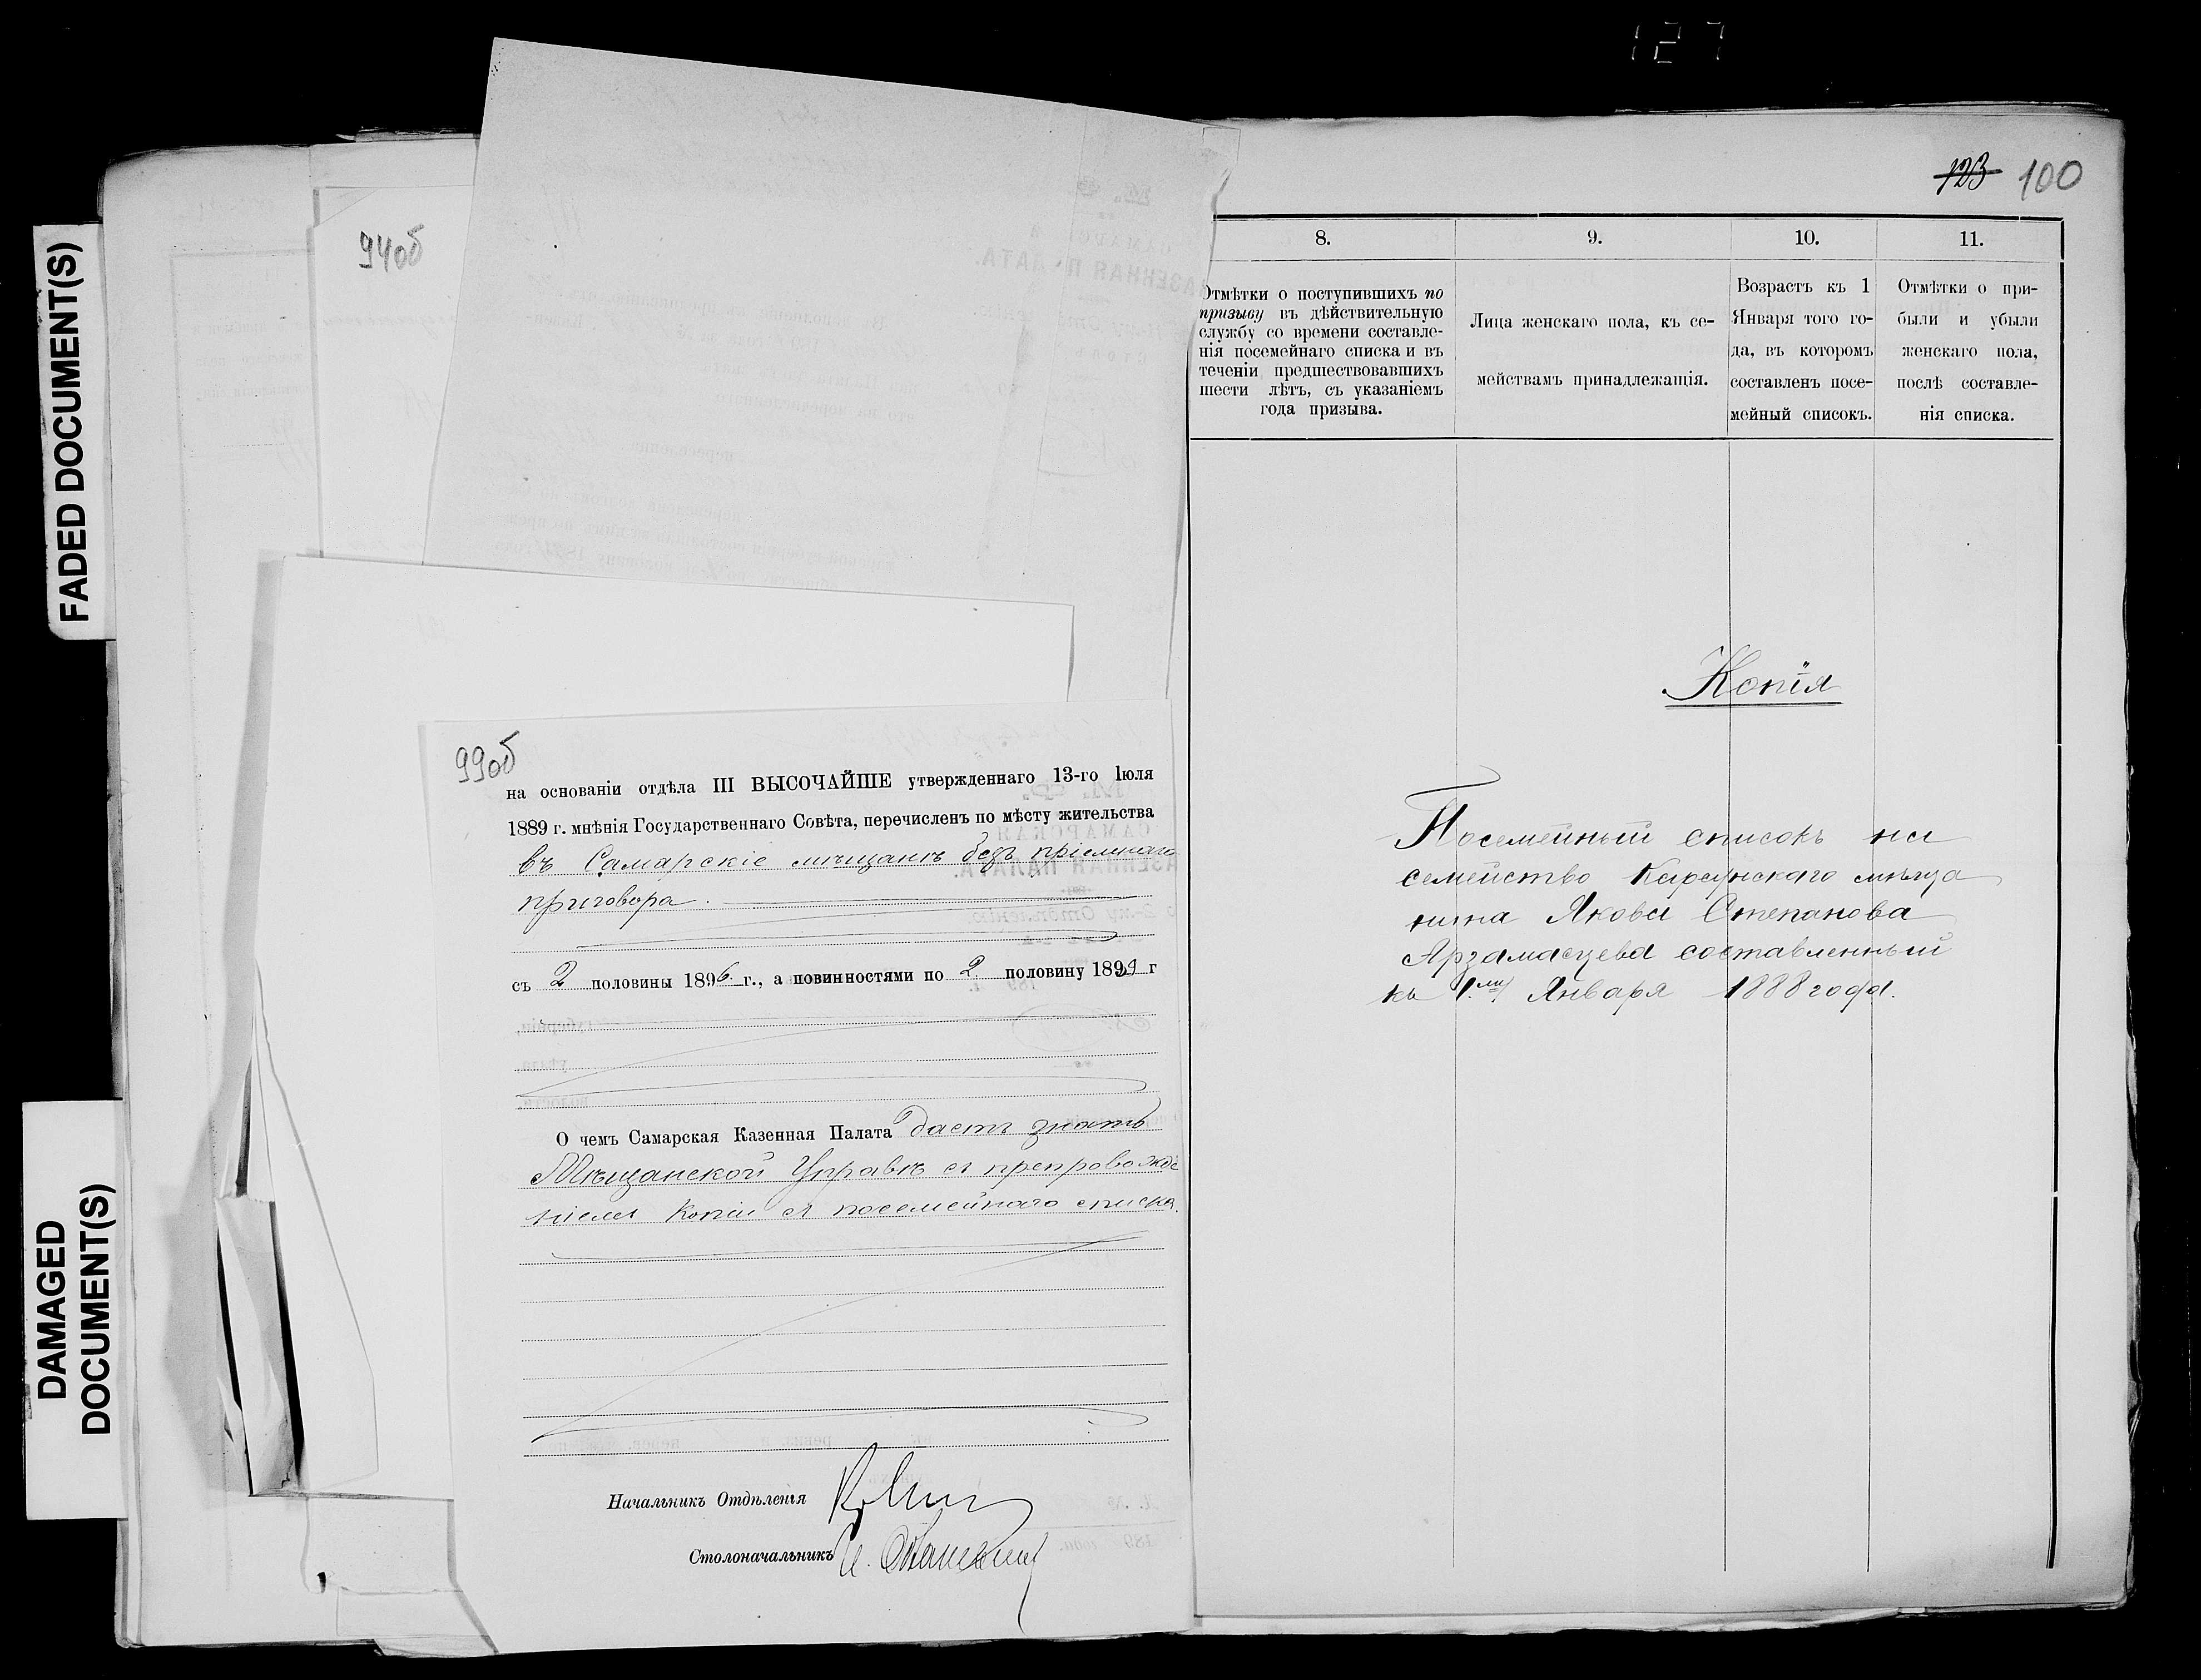 127
FADED DOCUMENT(S)
DAMAGED
DOCUMENT(S)
94об
99об
на основаніи отдѣла III ВЫСОЧАЙШЕ утвержденнаго 13-го Іюля
1889 г. мнѣнія Государственнаго Совѣта, перечисленъ по мѣсту жительства
въ Самарскіе мѣщане безъ пріемнаго
приговора.
съ 2 половины 1896 г., а повинностями по 2 половину 1899 г
О чемъ Самарская Казенная Палата даетъ знать
Мѣщанской Управѣ съ препровожде
ніемъ копіи съ посемейнаго списка.
Начальникъ Отдѣленія
Столоначальникъ
123 100
8.
Отмѣтки о поступившихъ по
призыву въ дѣйствительную
службу со времени составле-
нія посемейнаго списка и въ
теченіи предшествовавшихъ
шести лѣтъ, съ указаніемъ
года призыва.
9.
Лица женскаго пола, къ се-
мействамъ принадлежащія.
10.
Возрастъ къ 1
Января того го-
да, въ которомъ
составленъ посе-
мейный списокъ.
11.
Отмѣтки о при-
были и убыли
женскаго пола,
послѣ составле-
нія списка.
Копія
Посемейный списокъ на
семейство Карсунскаго мѣща
нина Якова Степанова
Арзамасцева составленный
къ 1му Января 1888 года.